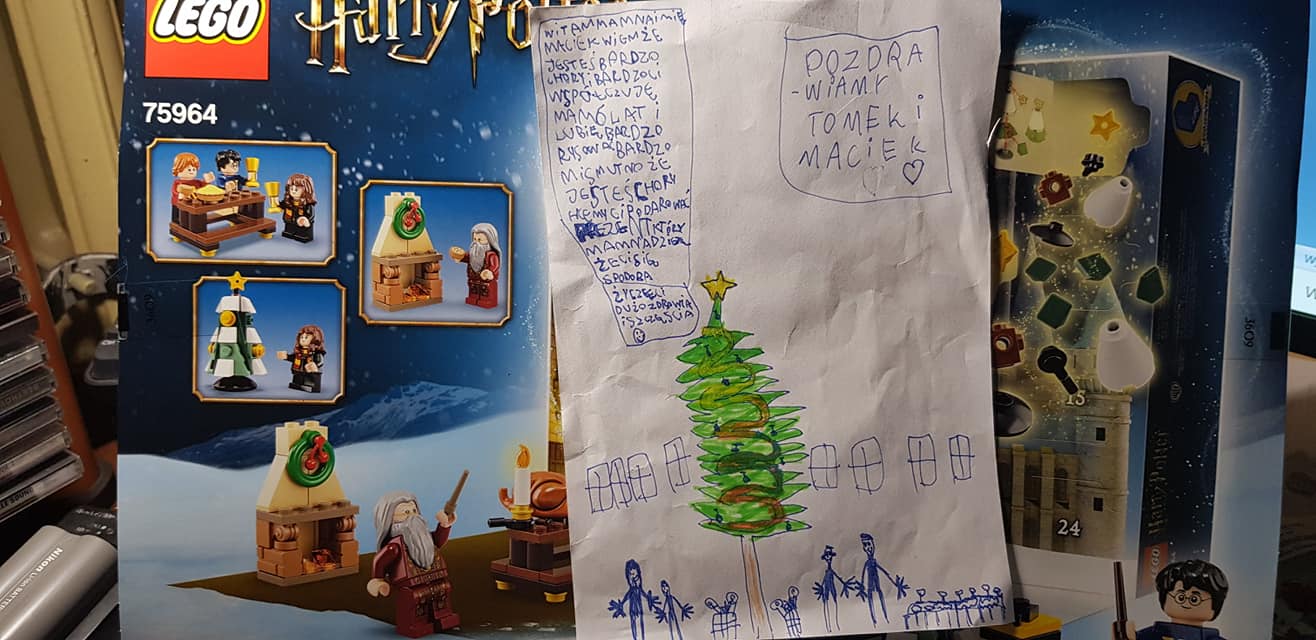 LEGO
Harry Potter
75964
WITAM MAM NA IMIĘ
MACIEK WIEM ŻE
JESTEŚ BARDZO
CHORY I BARDZO CI
WSPÓŁCZUJĘ
MAM 6 LAT I
LUBIĘ BARDZO
RYSOWAĆ BARDZO
MI SMUTNO ŻE
JESTEŚ CHORY
CHCEMY CI PODAROWAĆ
PREZENT KTÓRY
MAM NADZIEJĘ
ŻE CI SIĘ
SPODOBA
ŻYCZĘ CI
DUŻO ZDROWIA
I SZCZĘŚCIA
POZDRA
-WIAMY
TOMEK I
MACIEK
15
24
Harry Potter
LEGO
Nikon